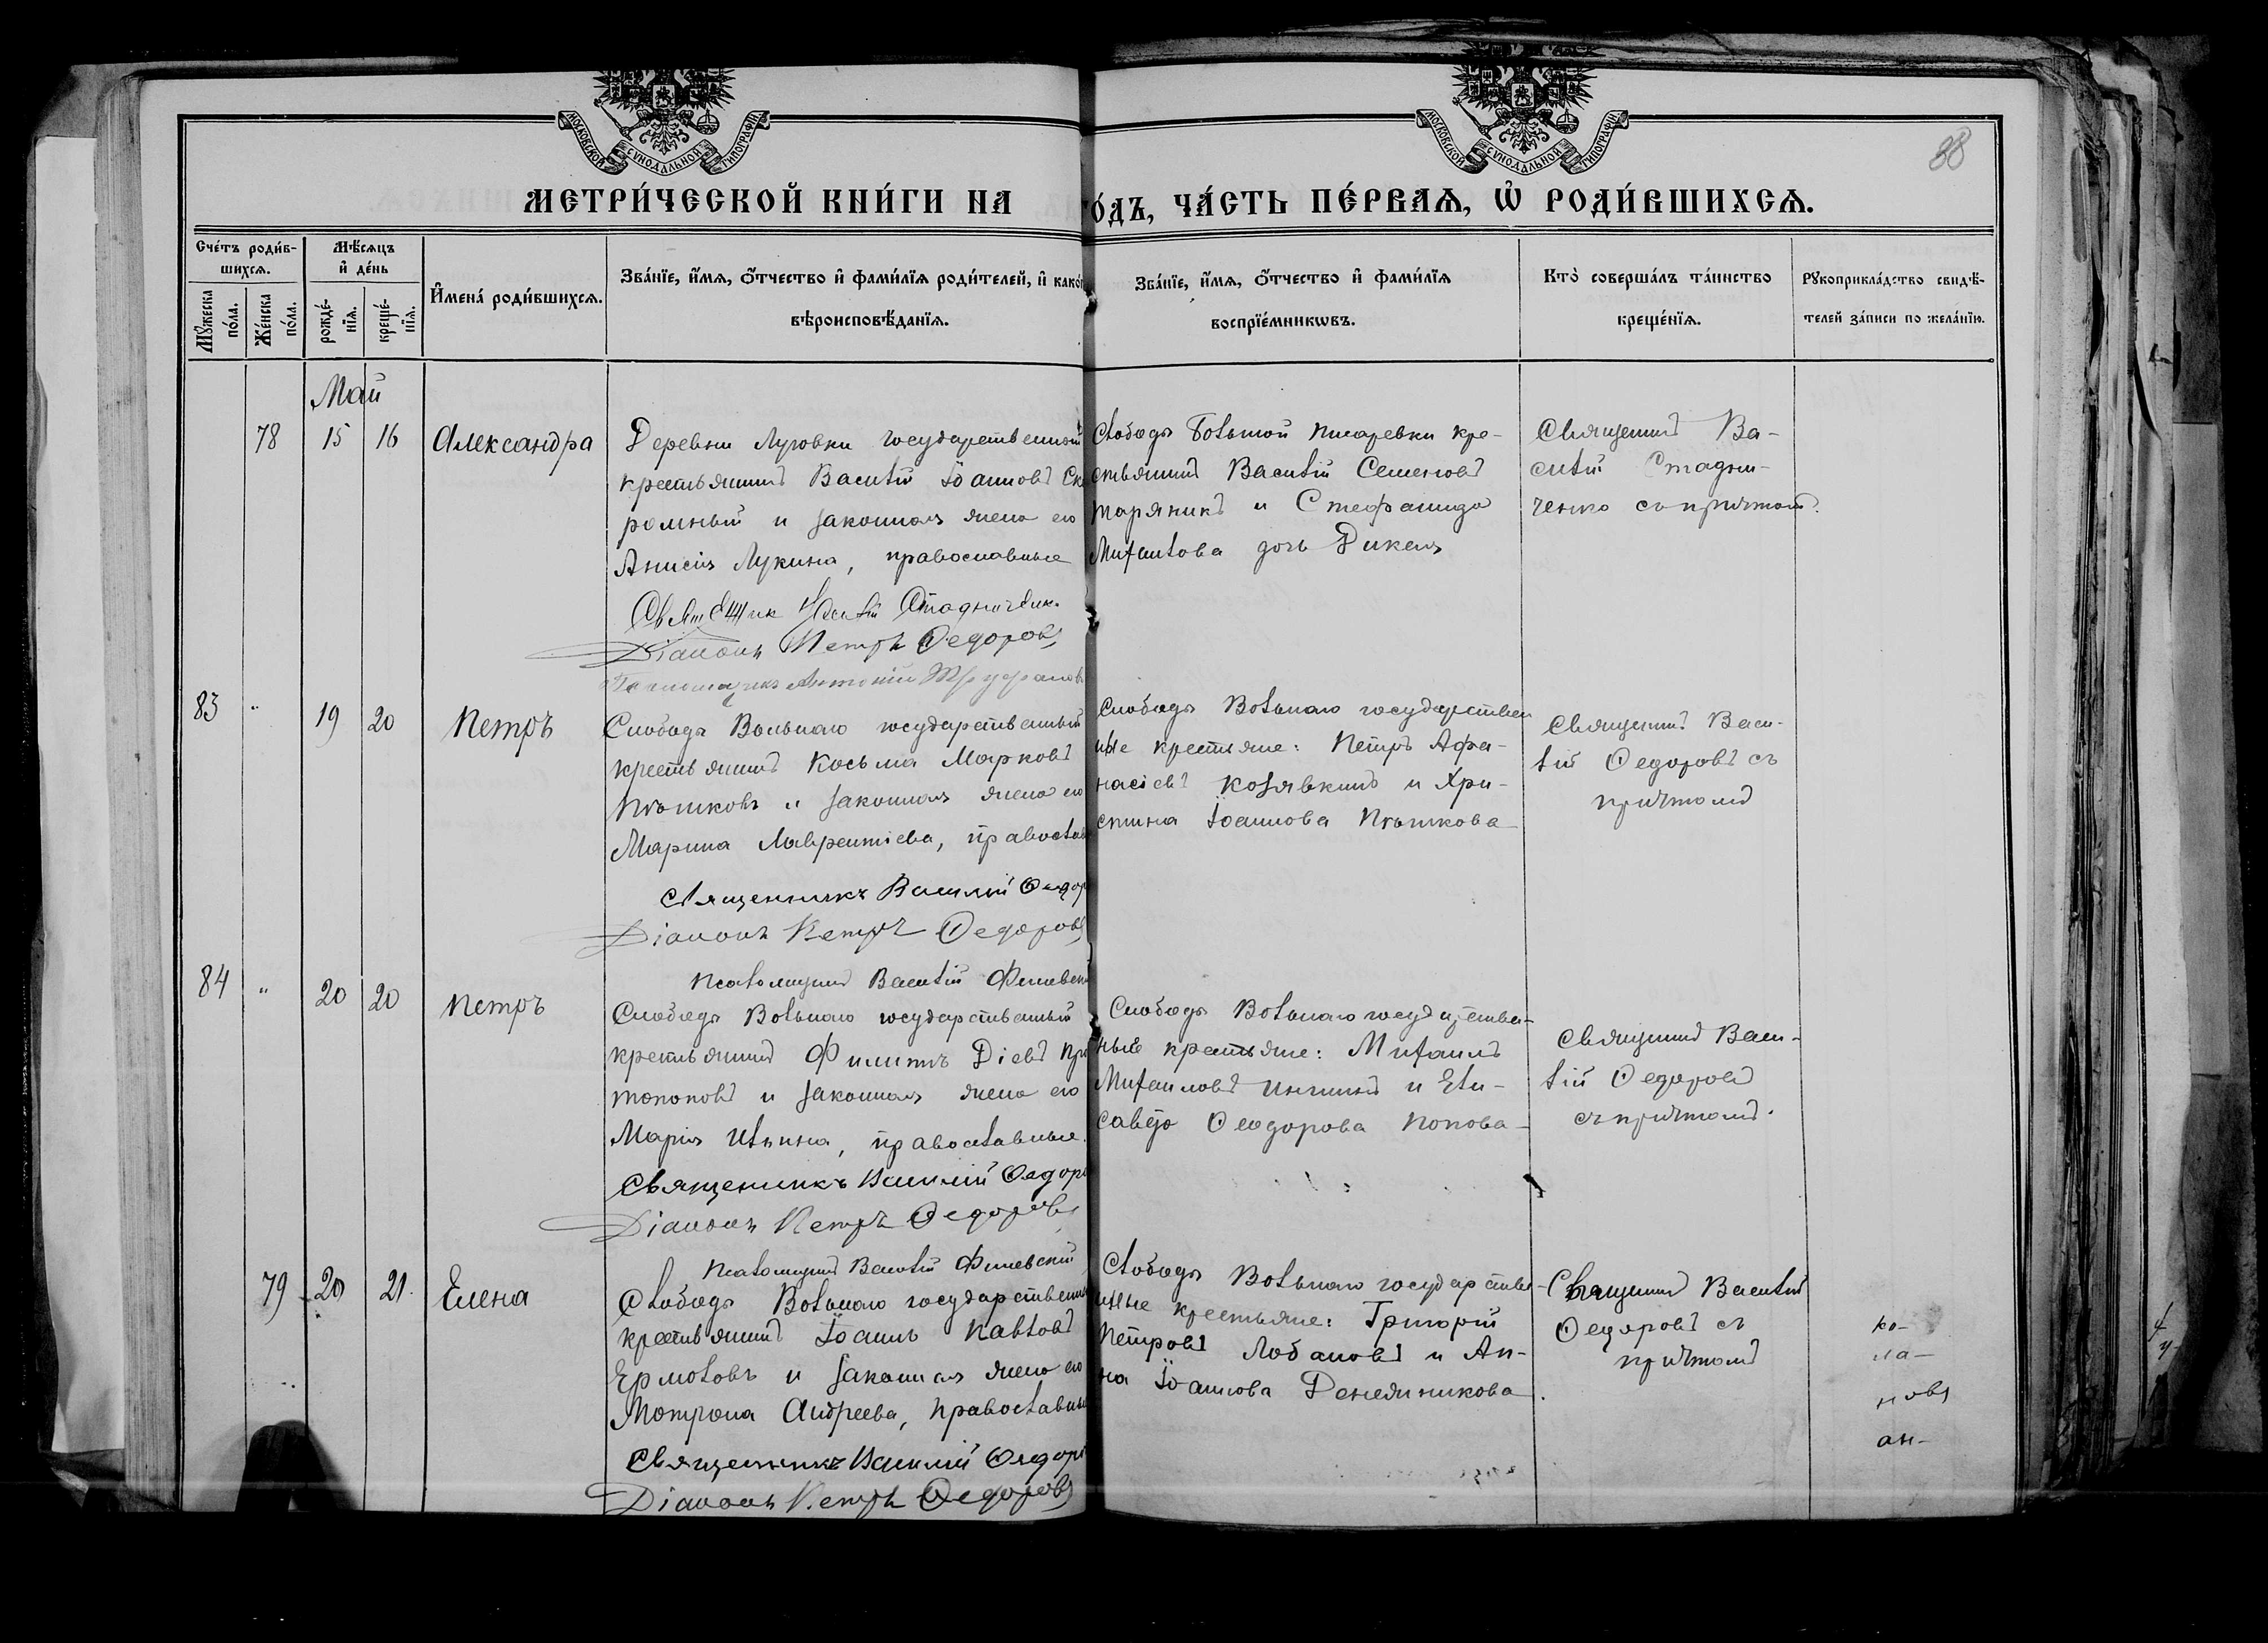 МОСКОВСКОЙ СУНОДАЛЬНОЙ ТИПОГРАФІИ
МОСКОВСКОЙ СУНОДАЛЬНОЙ ТИПОГРАФІИ
88
МЕТРИ́ЧЕСКОЙ КНИ́ГИ НА
О́ДЪ, ЧА́СТЬ ПЕ́РВАѦ, Ѡ҆ РОДИ́ВШИХСѦ.
Сче́тъ роди́в-
шихсѧ.
Мꙋ́жеска по́ла.
Же́нска по́ла.
Мѣ́сѧцъ
и҆ де́нь
рожде́-
нїѧ.
креще́-
нїѧ.
И҆мена̀ роди́вшихсѧ.
Зва́нїе, и҆́мѧ, ѻ҆́тчество и҆ фами́лїѧ роди́телей, и҆ како́г
вѣроисповѣ́данїѧ.
Зва́нїе, и҆́мѧ, ѻ҆́тчество и҆ фами́лїѧ
воспрїе́мникѡвъ.
Кто̀ соверша́лъ та́инство
креще́нїѧ.
Рꙋкоприкла́дство свидѣ́-
телей за́писи по жела́нїю.
Май
78
15
16
Александра
Деревни Луговки государственный
крестьянинъ Василій Іоанновъ Ск
ромный и законная жена его
Анисія Лукина, православные
Діаконъ Петръ Ѳедоровъ
Слободы Большой Писаревки кре-
стьянинъ Василій Семеновъ
и Стефанида
Михаилова дочь Дикая
Священникъ Ва-
силій Стадни-
ченко съ причтомъ.
83
"
19
20
Петръ
Слободы Вольнаго государственный
крестьянинъ Косьма Марковъ
и законная жена его
Марина Лаврентіева, православ
Священникъ Василій Ѳедор
Діаконъ Петръ Ѳедоровъ
Псаломщикъ Василій
Слободы Вольнаго государствен
ные крестьяне: Петръ Афа-
насіевъ Козявкинъ и Хри-
стина Іоаннова
Священникъ Васи-
лій Ѳедоровъ съ
причтомъ
84
"
20
20
Петръ
Слободы Вольнаго государственный
крестьянинъ Филиппъ Діевъ Пр
топоповъ и законная жена его
Марія Ильина, православные.
Священникъ Василій Ѳедоро
Діаконъ Петръ Ѳедоровъ
Псаломщикъ Василій
Слободы Вольнаго государствен-
ные крестьяне: Михаилъ
Михаиловъ и Ели-
савета Ѳеодорова Попова
Священникъ Васи-
лій Ѳедоровъ
съ причтомъ.
79
20
21.
Елена
Слободы Вольнаго государственный
крестьянинъ Іоаннъ Павловъ
Ермоловъ и законная жена его
Мотрона Андреева, православные
Священникъ Василій Ѳедоро
Діаконъ Петръ Ѳедоровъ
Слободы Вольнаго государствен-
ные крестьяне: Григорій
Петровъ Лобановъ и Ан-
на Іоаннова Денежникова.
Священникъ Василій
Ѳедоровъ съ
причтомъ
ко-
ла-
новъ
ан-